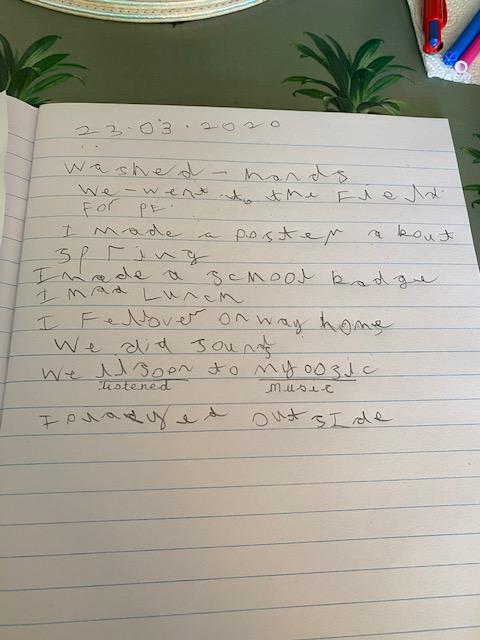 23.03.2020
Washed - hands
We - went to the Field
For PE.
I made a poster a bout
spring
I made a school badge
I had Lunch
I Fell over on way home
We did sounds
We to myoosic
listened music
I played outside